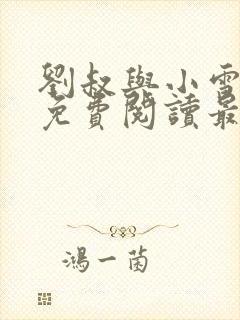 劉叔與小雪
免費閱讀最
鴻一菌